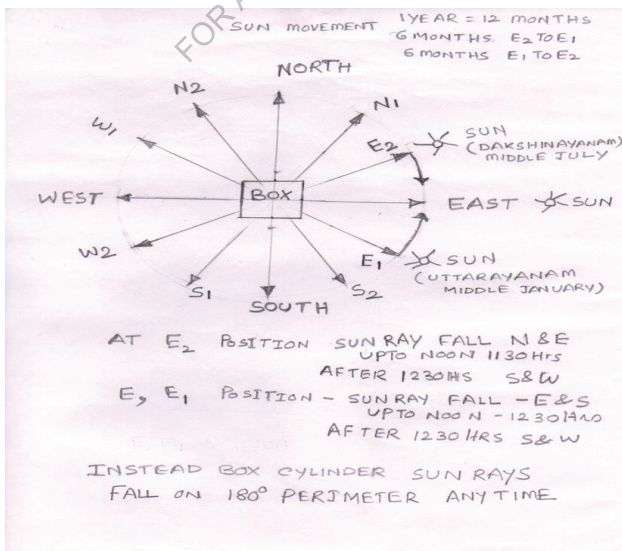 FOR A
SUN MOVEMENT 1YEAR = 12 MONTHS
6 MONTHS E2 TO E1
6 MONTHS E1 TO E2
NORTH
N2
N1
W1
E2
SUN
(DAKSHINAYANAM)
MIDDLE JULY
WEST
BOX
EAST
SUN
W2
E1
SUN
(UTTARAYANAM
MIDDLE JANUARY)
S1
S2
SOUTH
AT E2 POSITION SUN RAY FALL N&E
UPTO NOON 1130Hrs
AFTER 1230HS S&W
E, E1 POSITION - SUNRAY FALL - E&S
UPTO NOON - 1230HRS
AFTER 1230 HRS S&W
INSTEAD BOX CYLINDER SUN RAYS
FALL ON 180° PERIMETER ANYTIME